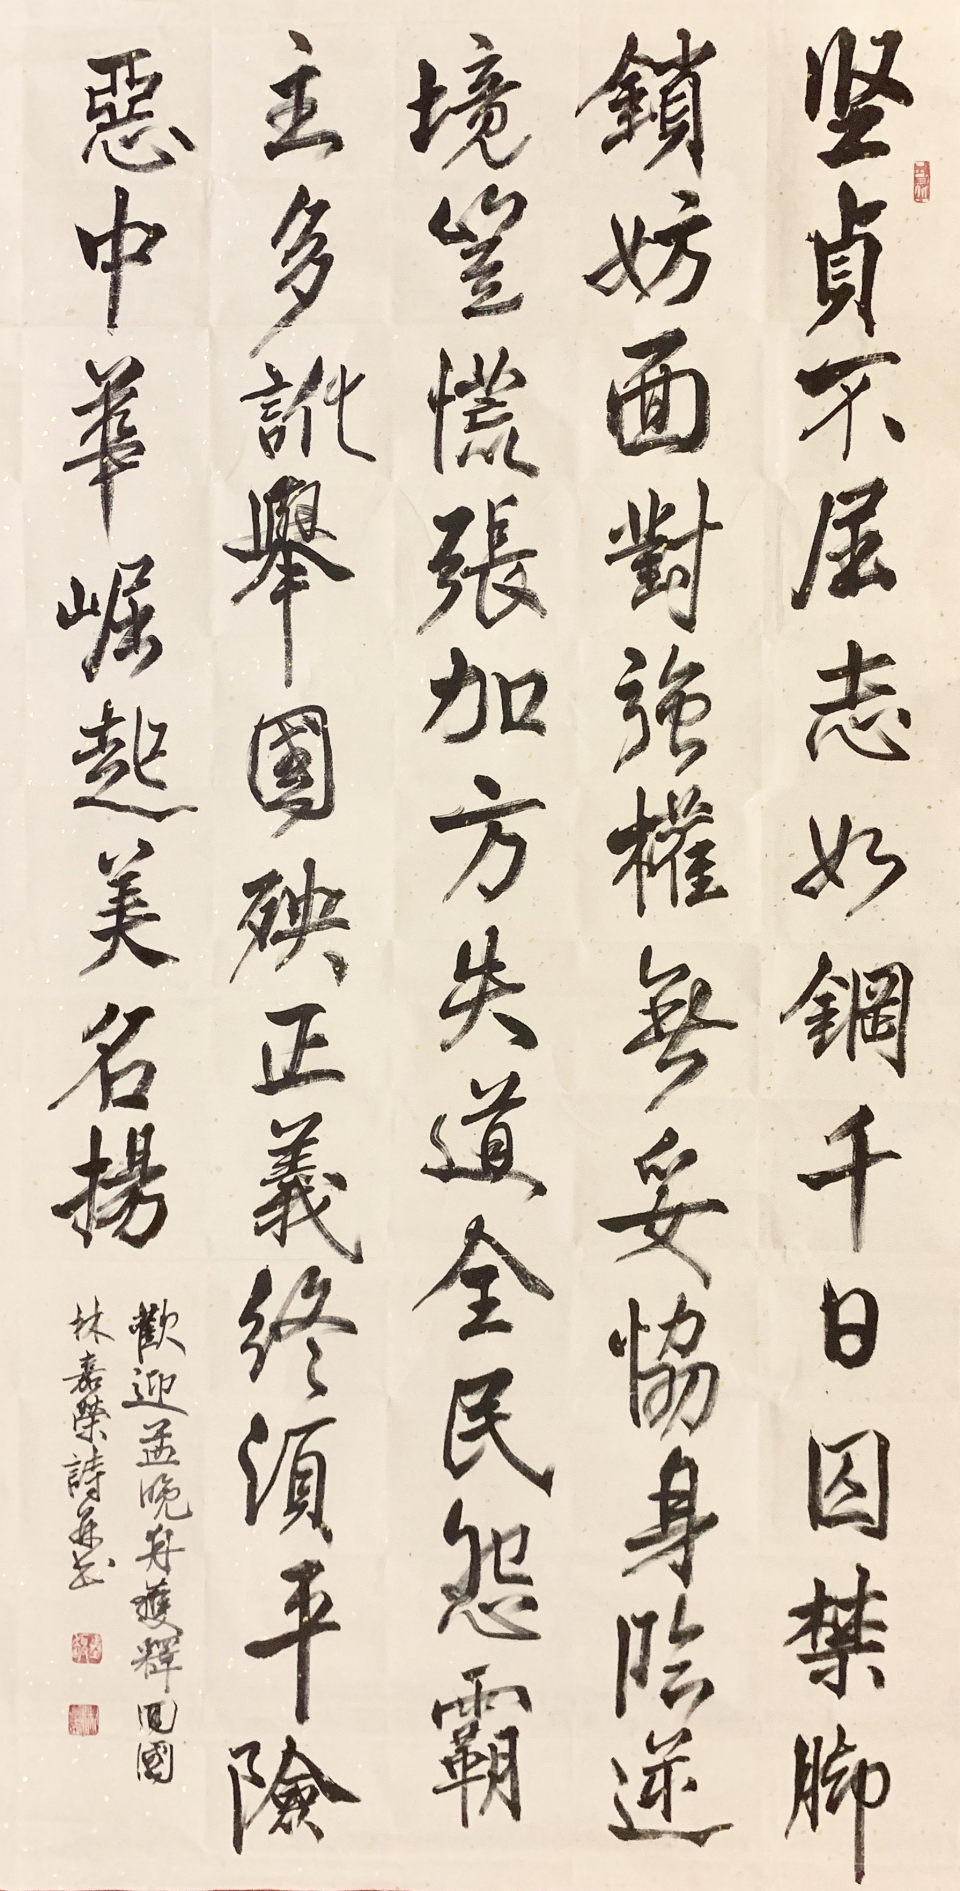 坚貞不屈志如鋼千日囚禁脚
鎖妨面對強權無妥協身陷逆
境豈慌張加方失道全民怨霸
主多訛舉國殃正義終須平險
惡中華崛起美名揚
歡迎孟晚舟獲釋回國
林嘉榮詩并书